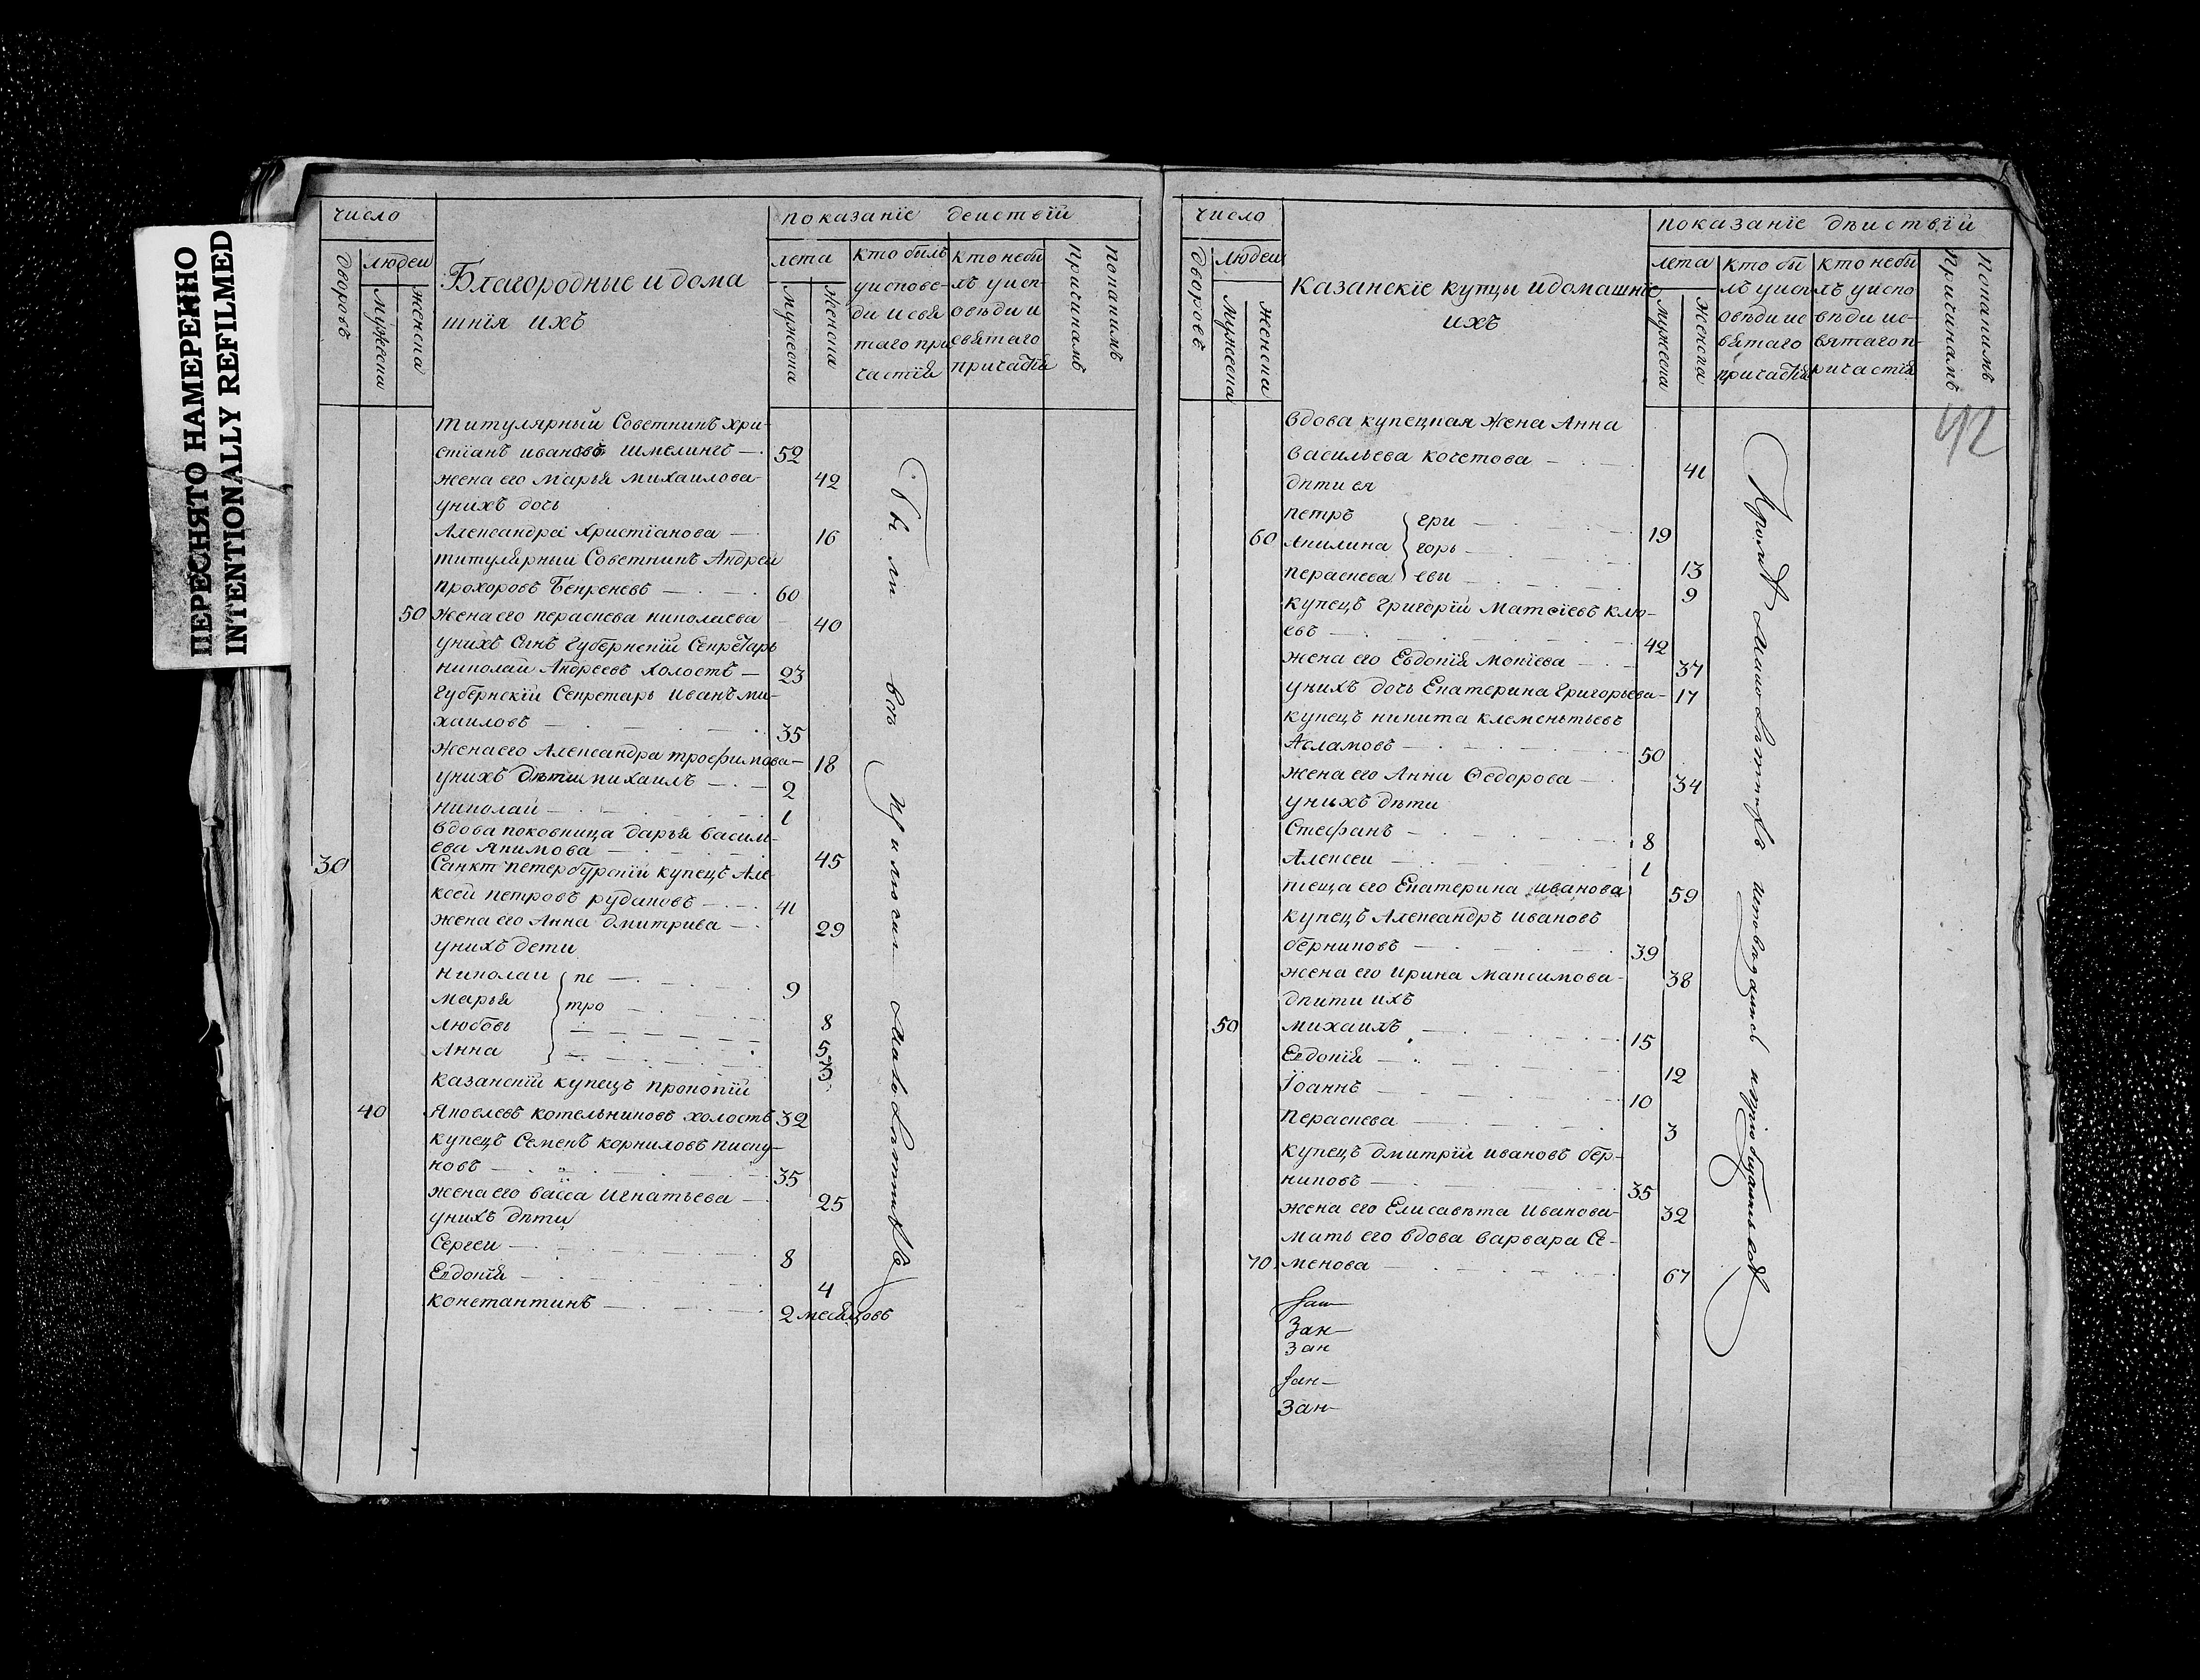 ПЕРЕСНЯТО НАМЕРЕННО
INTENTIONALLY REFILMED
число
показанїе деиствїй
дворовъ
людеи
мужеска
женска
Благородные и дома
шнїя ихъ
лета
мужеска
женска
кто былъ
уиспове-
ди и свя
таго при
частїя
кто небы
лъ уисп-
оведи и
святаго
причастїя
Покакимъ
Причинамъ
титулярный Советникъ Хри-
стїанъ ивановъ шмелингъ 52
жена его Марья Михаилова 42
унихъ дочь
Александра Христїанова 16
титулярныи Советникъ Андреи
прохоровъ Бекреневъ 60
50 жена его параскева николаева 40
унихъ Сынъ Губернскїй Секретарь
николай Андреевъ холостъ 23
Губернскїй Секретарь Иванъ ми-
хаиловъ 35
жена его Александра трофимова 18
унихъ дѣти михаилъ 2
николаи 1
вдова поковница дарья василь-
ева Якимова 45
30 Санкт петербурскїй купецъ Але-
ксей петровъ рудаковъ 41
жена его Анна дмитрива 29
унихъ дети
николаи пе 9
марья тро 8
любовь 5
Анна 3
казанскїй купецъ прокопїй
40 Яковлевъ котельниковъ холостъ 32
купецъ Семенъ корниловъ писку-
новъ 35
жена его васса игнатьева 25
унихъ дѣти
Сергеи 8
Евдокїя 4
константинъ 2 месяцовъ
Были все
число
показанїе дѣиствїй
дворовъ
людеи
мужеска
женска
Казанскїе купцы идомашнїе
ихъ
лета
мужеска
женска
кто бы
лъ уисп
овѣди ис
вятаго
причастїя
кто небы
лъ уиспо
вѣди ис-
вятаго п-
ричастїя
Покакимъ
Причинамъ
42
вдова купецкая жена Анна
васильева кочетова 41
дѣти ея
петръ гри 19
60 Акилина горь 13
параскева евы 9
купецъ григорїй Матѳїевъ клю-
евъ 42
жена его Евдокїя мокїева 37
унихъ дочь Екатерина григорьева 17
купецъ никита клементьевъ
Асламовъ 50
жена его Анна Ѳедорова 34
унихъ дѣти
Стефанъ 8
Алексеи 1
теща его Екатерина иванова 59
купецъ Александръ ивановъ
берниковъ 39
жена его ирина максимова 38
дѣти ихъ
50 михаилъ 15
Евдокїя 12
Їоаннъ 10
параскева 3
купецъ дмитрїй ивановъ бер-
никовъ 35
жена его Елисавета иванова 32
мать его вдова варвара Се-
70 менова 67
Зак
Зак
Зак
Зак
Зак